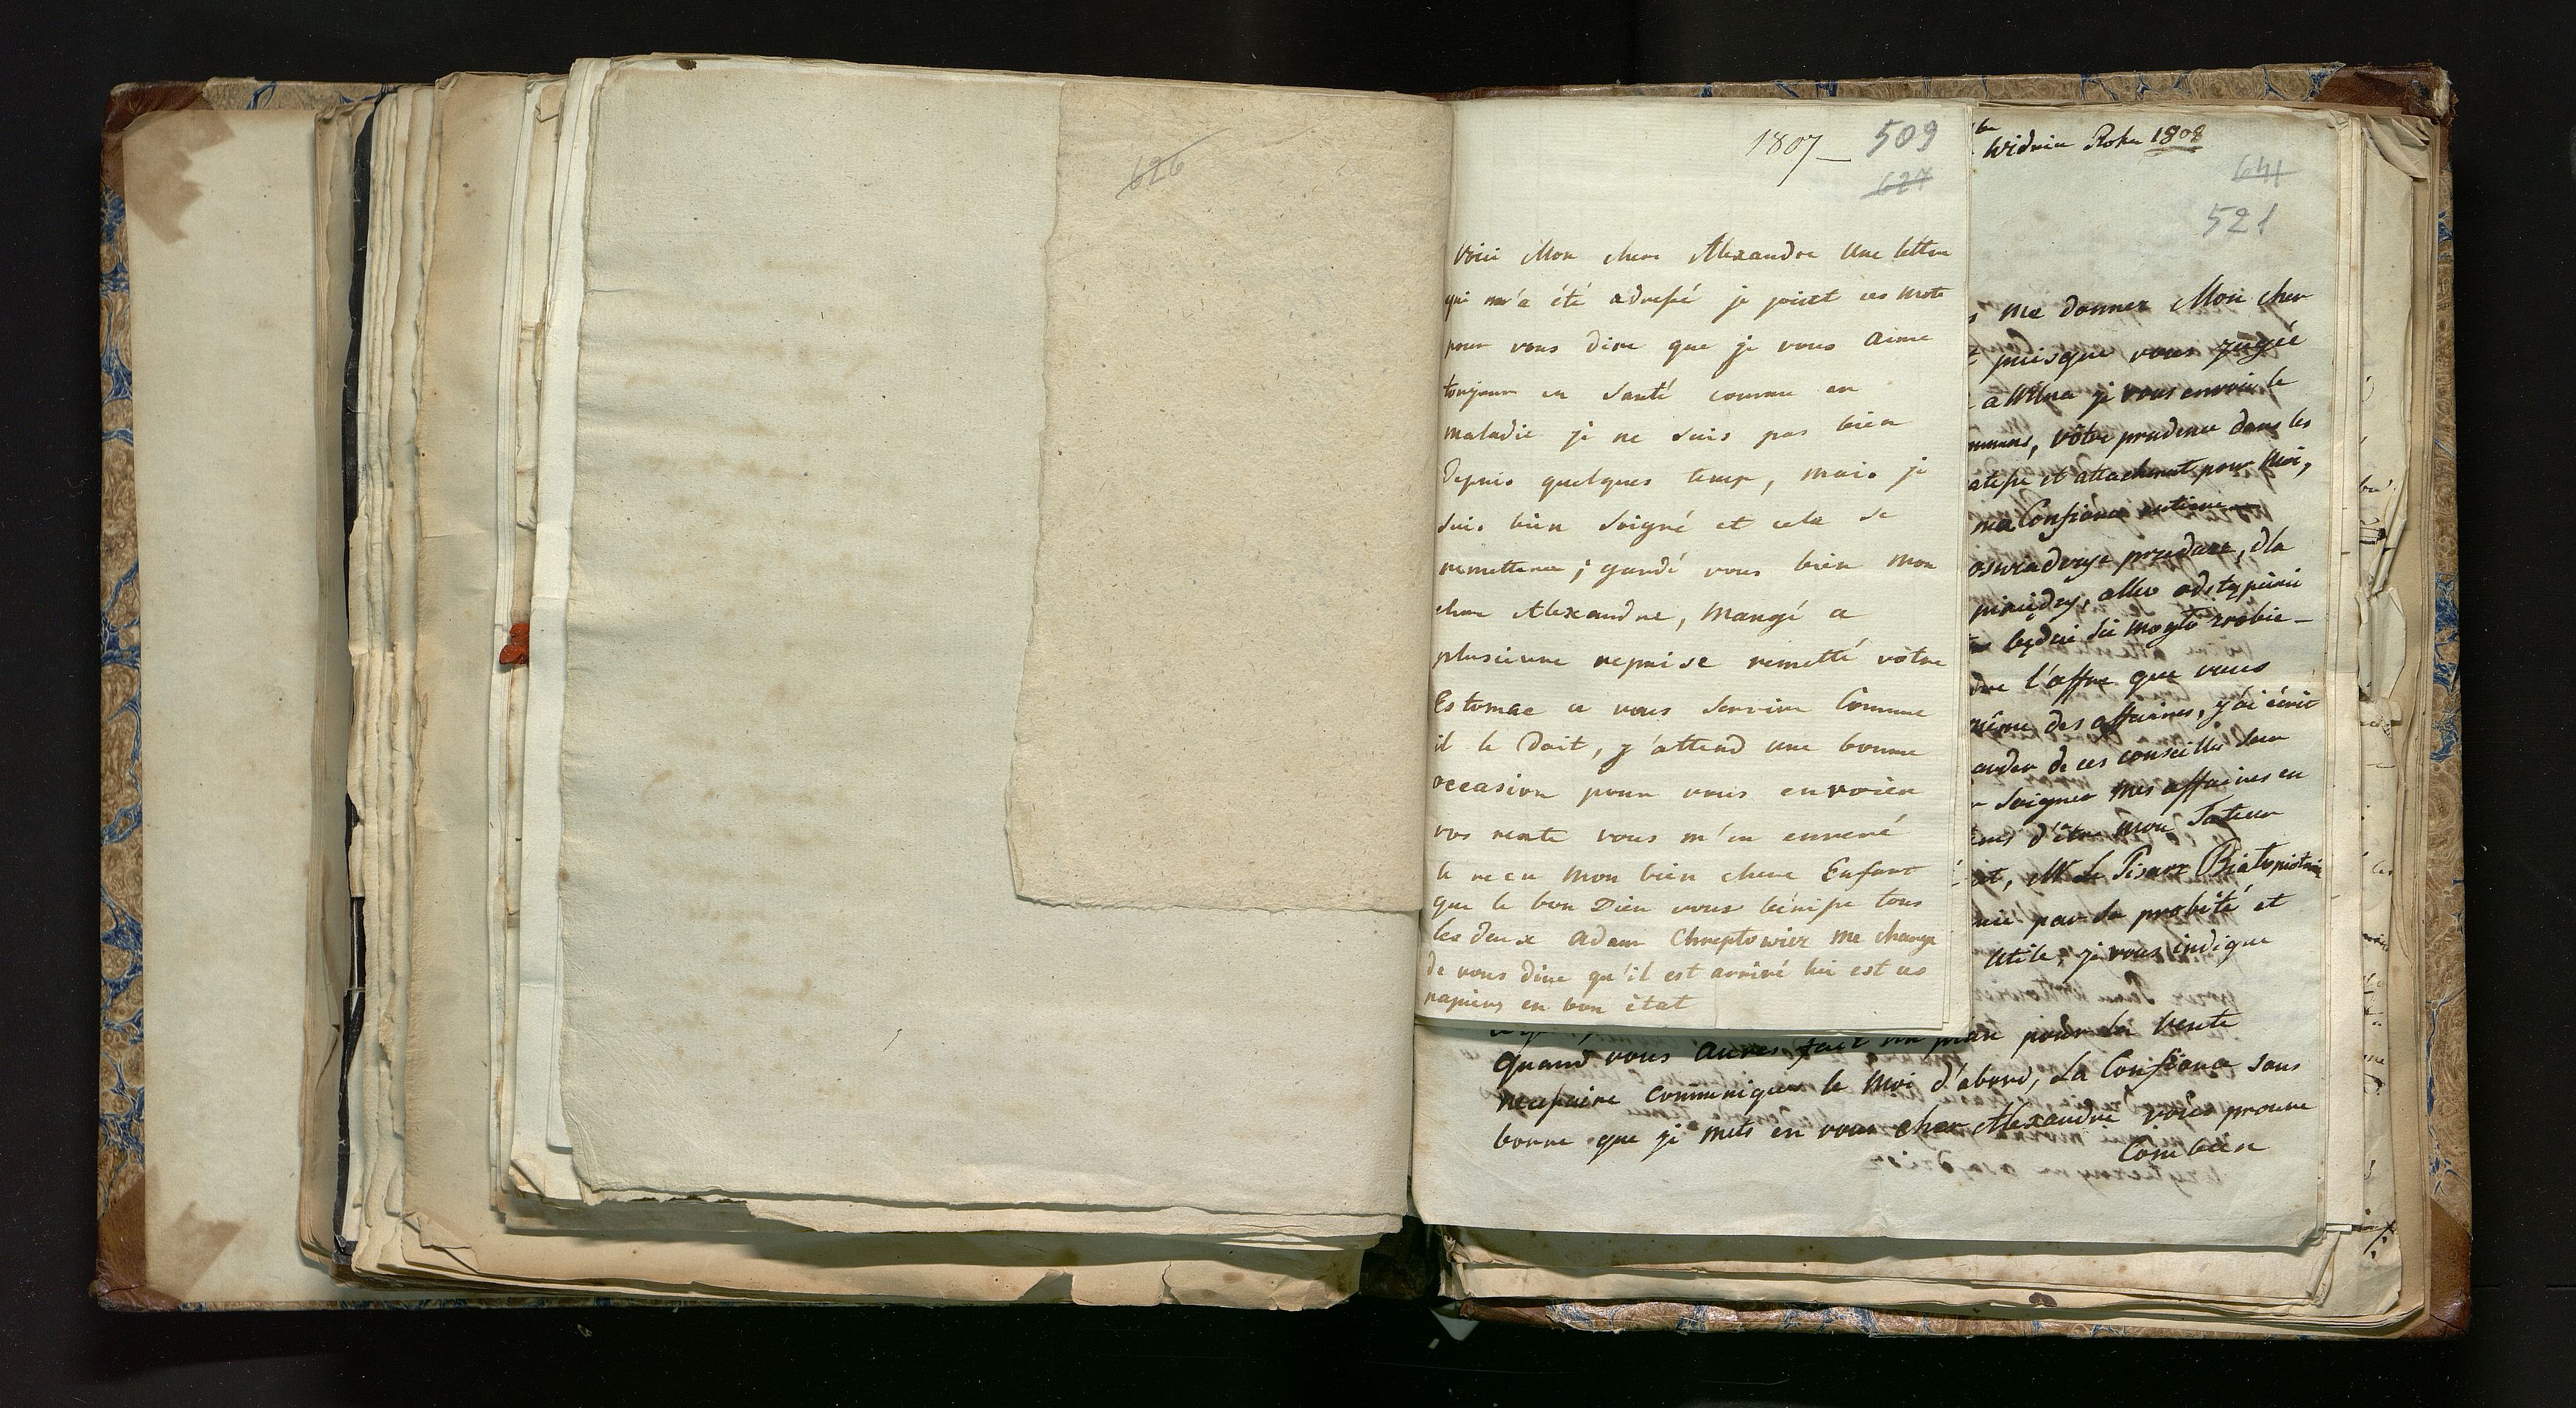 626
1807 — 509
627
Voici Mon chere Alexandre Une lettre
qui m'a été adressé je joint ces mots
pour vous dire que je vous aime
toujours en santé comme en
maladie je ne suis pas bien
depuis quelques temp, mais je
suis bien soigné et cela se
remettera; gardé vous bien mon
chere Alexandre, Mangé a
plusieure reprise remetté vôtre
Estomac a vous servire Comme
il le doit, j'attend une bonne
occasion pour vous envoier
vos rente vous m'en enveré
le recu Mon bien chere Enfant
que le bon Dieu vous bénisse tous
les deux Adam Chreptowicz me charge
de vous dire qu'il est arrivé lui est ces
papiers en bon état
Widnia Roku 1808
641
521
me donner Mon cher
puisque vous jugée
a Wilna je vous envoie le
vôtre prudence dans les
et attachement pour Moi,
ma Confiance entiere
l'offre que vous
des affaires, j'ai écrit
de ces conseilles
soigner mes affaires en
d'être mon Tuteur
par sa probité et
Utile, je vous indique
plan pour la Vente
quand vous aures fait un
necessaire communiquer le Moi d'abord, La Confiance sans
borne que je mets en vous cher Alexandre vous prouve
Combien